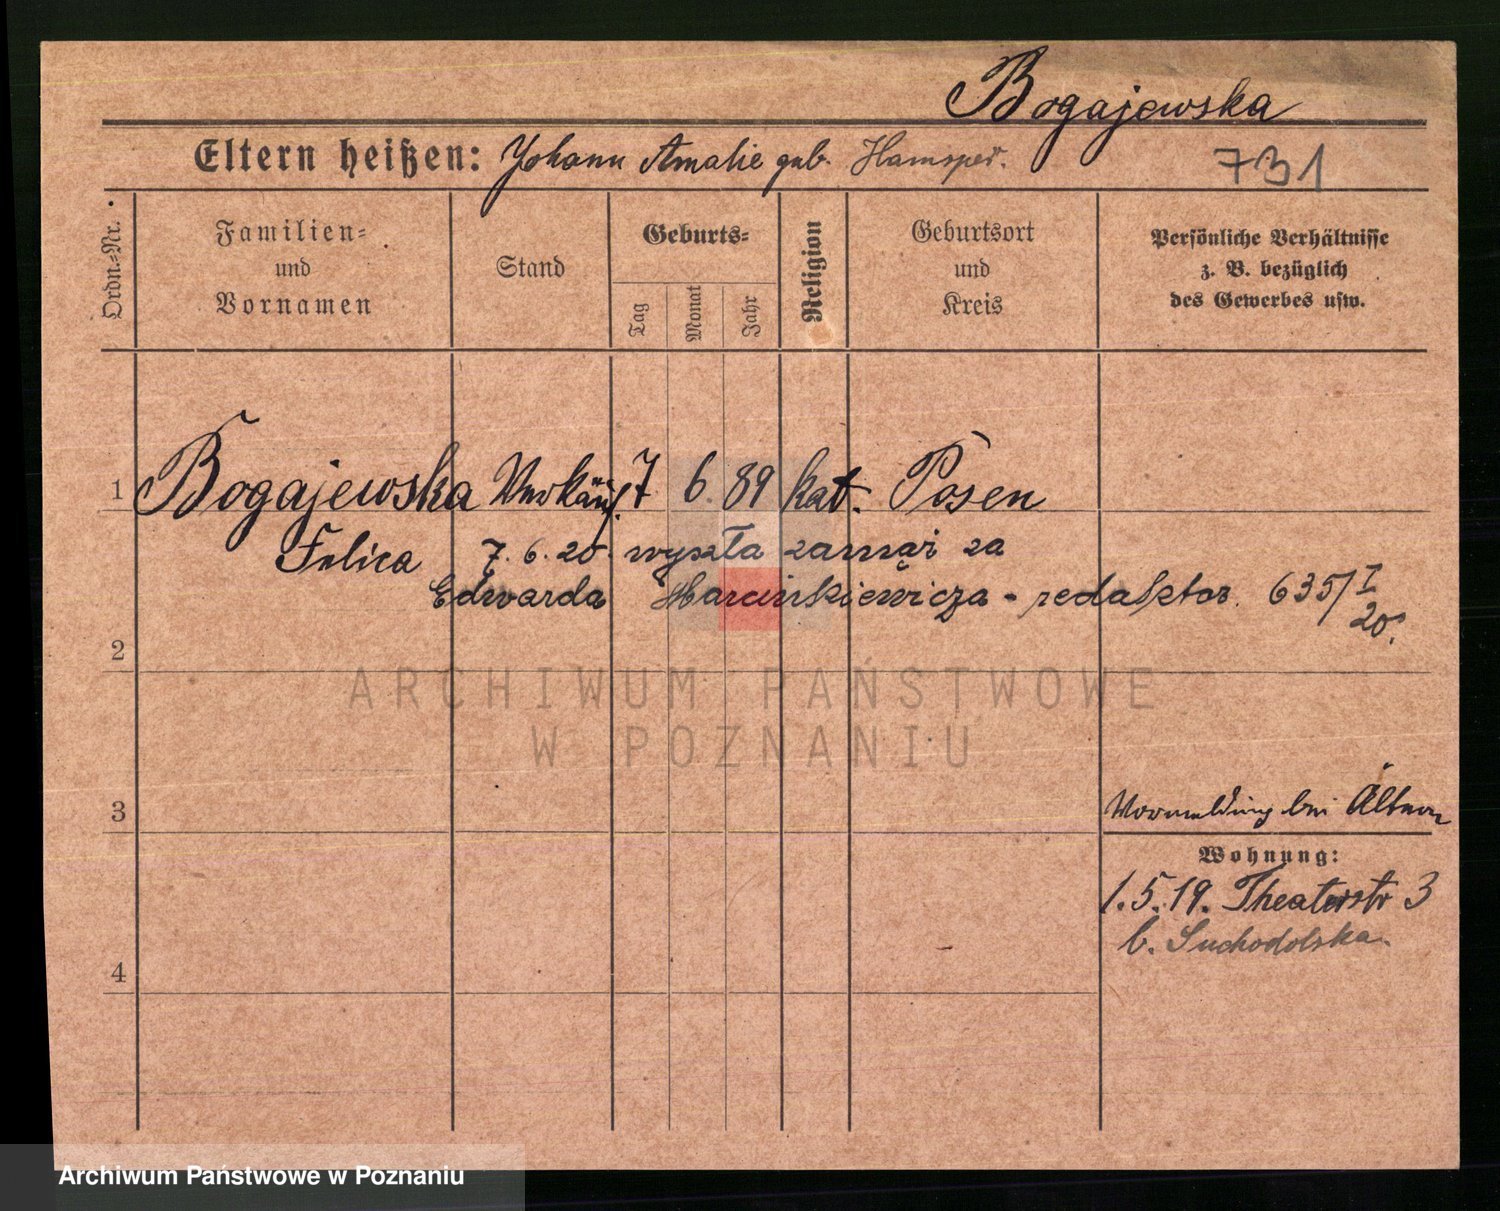 Bogajewska
Eltern heißen: Johann Amalie geb. Hamsper.
731
Ordn.-Nr.
Familien-
und
Vornamen
Stand
Geburts-
Tag
Monat
Jahr
Religion
Geburtsort
und
Kreis
Persönliche Verhältnisse
z. B. bezüglich
des Gewerbes usw.
1 Bogajewska Verkäuf. 7 6. 89 kat. Posen
Felica 7. 6. 20. wyszła zamąż za
Edwarda Marcinkiewicza - redaktor. 635/I
20.
2
ARCHIWUM PAŃSTWOWE
W POZNANIU
3
Vormeldung bei Ältern
Wohnung:
1. 5. 19. Theaterstr 3
b. Suchodolska.
4
Archiwum Państwowe w Poznaniu